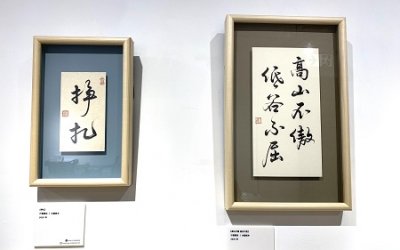 挣扎
高山不傲
低谷不屈